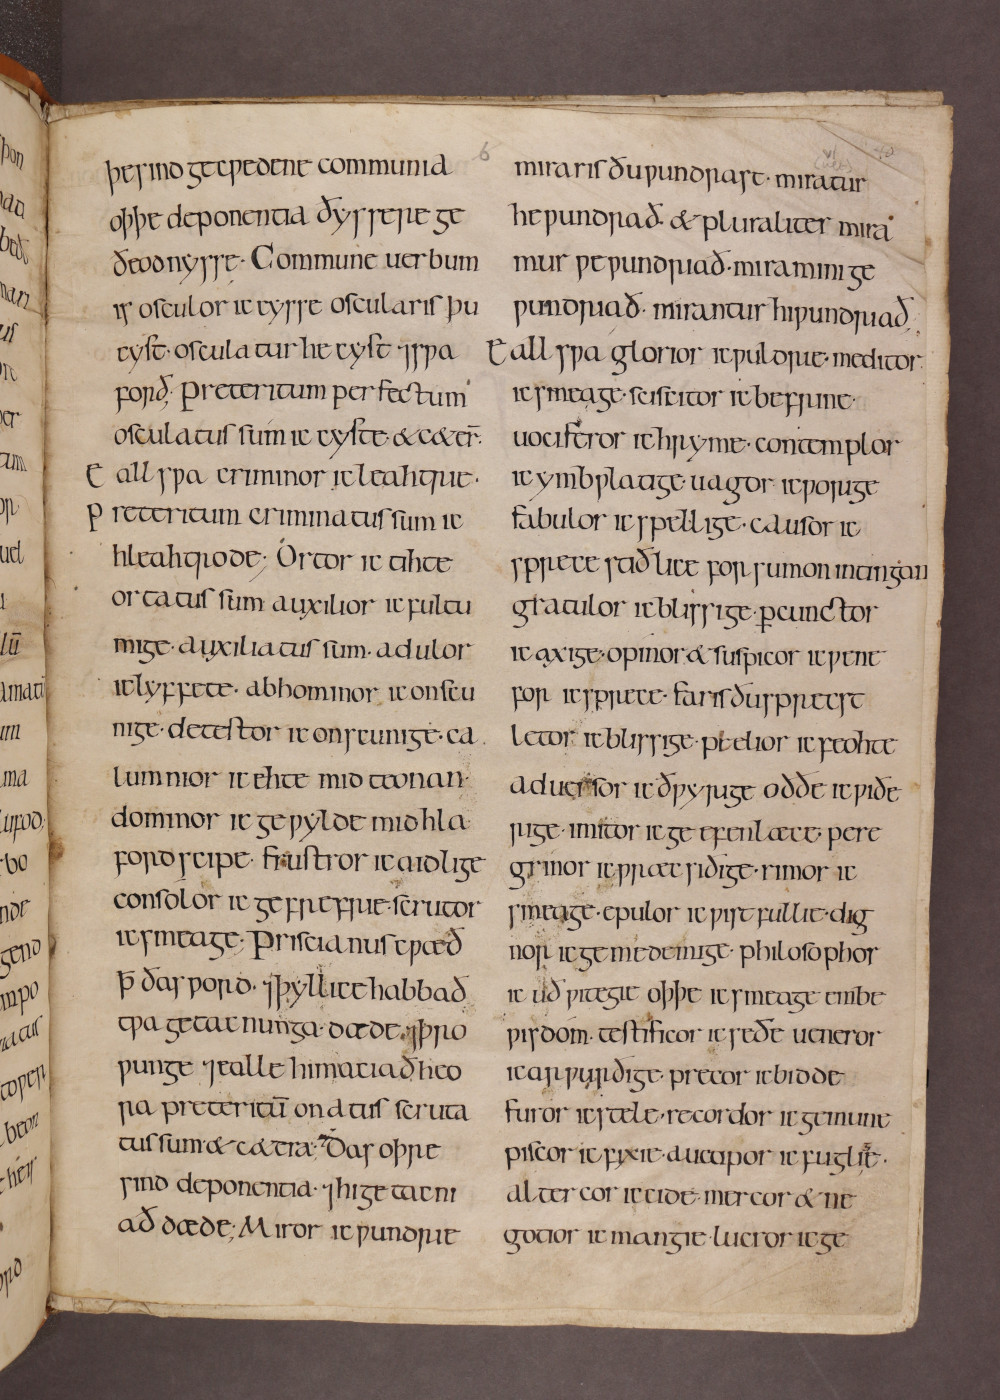 þes ind geCƿedene communia
oþþe deponentia ðyssere ge
ðeodnysse. Commune uerbum
is osculor ic cysse oscularis þu
cyst. osculatur he cyst ⁊sƿa
forð; Preteritum perfectum
osculatus sum ic cyste. &c&er̄.
Eall sƿa criminor ic leahtrie.
Preteritum criminatus sum ic
hleahtrode; Ortor ic tihte
ortatus sum. auxilior ic fultu
mige. auxiliatus sum. adulor
ic lyffete. abhominor ic onscu
nige. detestor ic onscunige. ca
lumnior ic ehte mid teonan.
dominor ic geƿylde mid hla
fordscipe. frustror ic aidlige
consolor ic gefrefrie. scrutor
ic smeage; Priscianus cƿæð
ꝥ ðas ƿord. ⁊þyllice habbað
tƿa getacnunga. dæde. ⁊þro
ƿunge ⁊ealle hi maciað heo
ra preteritū on atus scruta
tus sum & c&era. Ðas oþre
sind deponentia. ⁊hi getacni
að dæde; Miror ic ƿundrie
6
miraris ðu ƿundrast. miratur
he ƿundrað. & pluraliter mira
mur ƿe ƿundriað. miramini ge
ƿundriað. mirantur hi ƿundriað.
Eall sƿa glorior ic ƿuldrie. meditor
ic smeage. sciscitor ic befrine.
uociferor ic hryme. contemplor
ic ymbƿlatige. uagor ic ƿorige
fabulor ic spellige. causor ic
sprece stiðlice for sumon intingan
gratulor ic blissige. ꝑcunctor
ic axige. opinor & suspicor ic ƿene
for ic sprece. faris ðu sprecst
letor ic blissige. prelior ic feohte
aduersor ic ðƿyrige oððe ic ƿiðe
rige. imitor ic geefenlæce. pere
grinor ic ƿræcsiðige. rimor ic
smeage. epulor ic ƿist fullie. dig
nor ic gemedemige. philosophor
ic uðƿitegie oþþe ic smeage embe
ƿisdom. testificor ic seðe ueneror
ic arƿurðige. precor ic bidde
furor ic stele. recordor ic gemune
piscor ic fixie. aucupor ic fuglie.
altercor ic cide. mercor & ne
gotior ic mangie. lucror ic ge